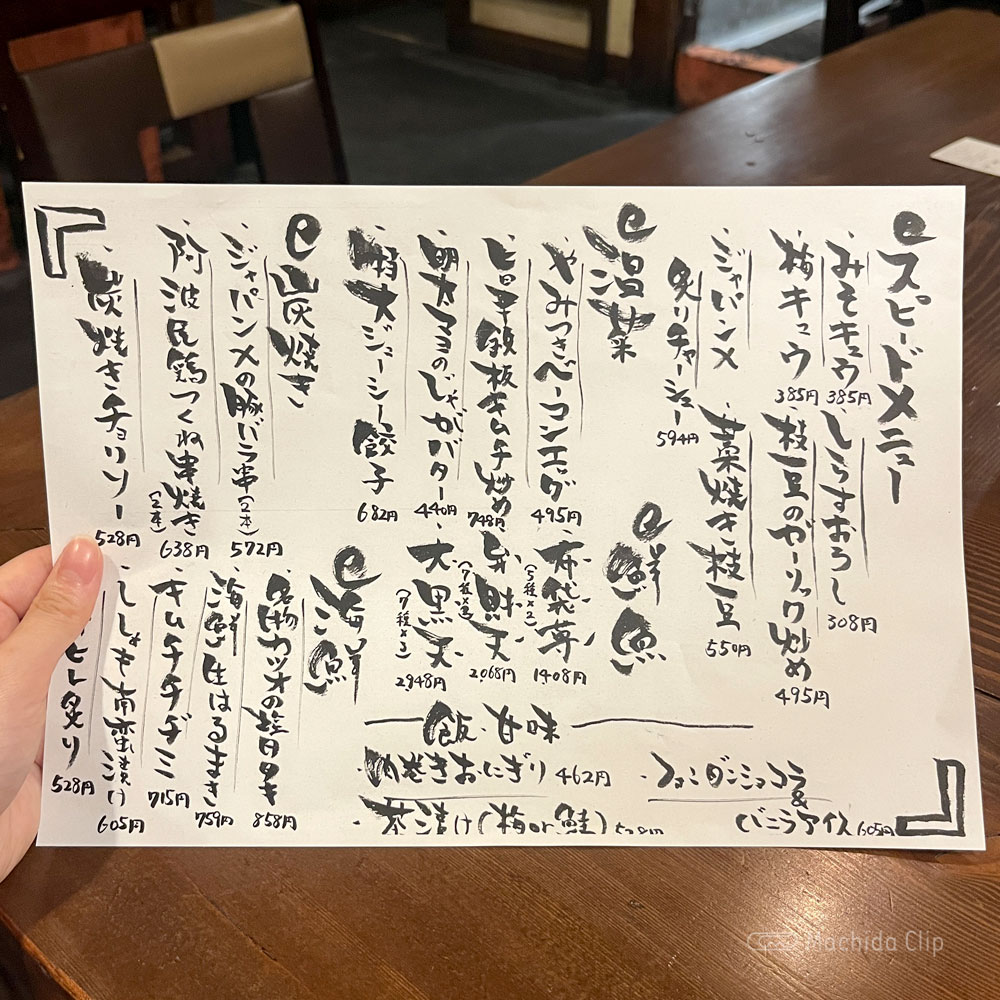 スピードメニュー
みそキュウ 385円
しらすおろし 308円
梅キュウ 385円
枝豆のガーリック炒め 495円
ジャパンメ
炙りチャーシュー 594円
藁焼き枝豆 550円
温菜
やみつきベーコンエッグ 495円
旨辛鉄板キムチ炒め 748円
明太マヨのじゃがバター 440円
特大ジューシー餃子 682円
鮮魚
布袋尊 (5種×2) 1408円
弁財天 2,068円
大黒天 2,948円
炭焼き
ジャパンメの豚バラ串 (2本) 572円
阿波尾鶏つくね串焼き (2本) 638円
炭焼きチョリソー 528円
海鮮
名物カツオの塩タタキ 858円
海鮮生はるまき 759円
キムチチヂミ 715円
ししゃも南蛮漬け 605円
ヒレ炙り 528円
飯・甘味
肉巻きおにぎり 462円
・茶漬け(梅or鮭) 528円
・フォンダンショコラ
&
バニラアイス 605円
Machida Clip